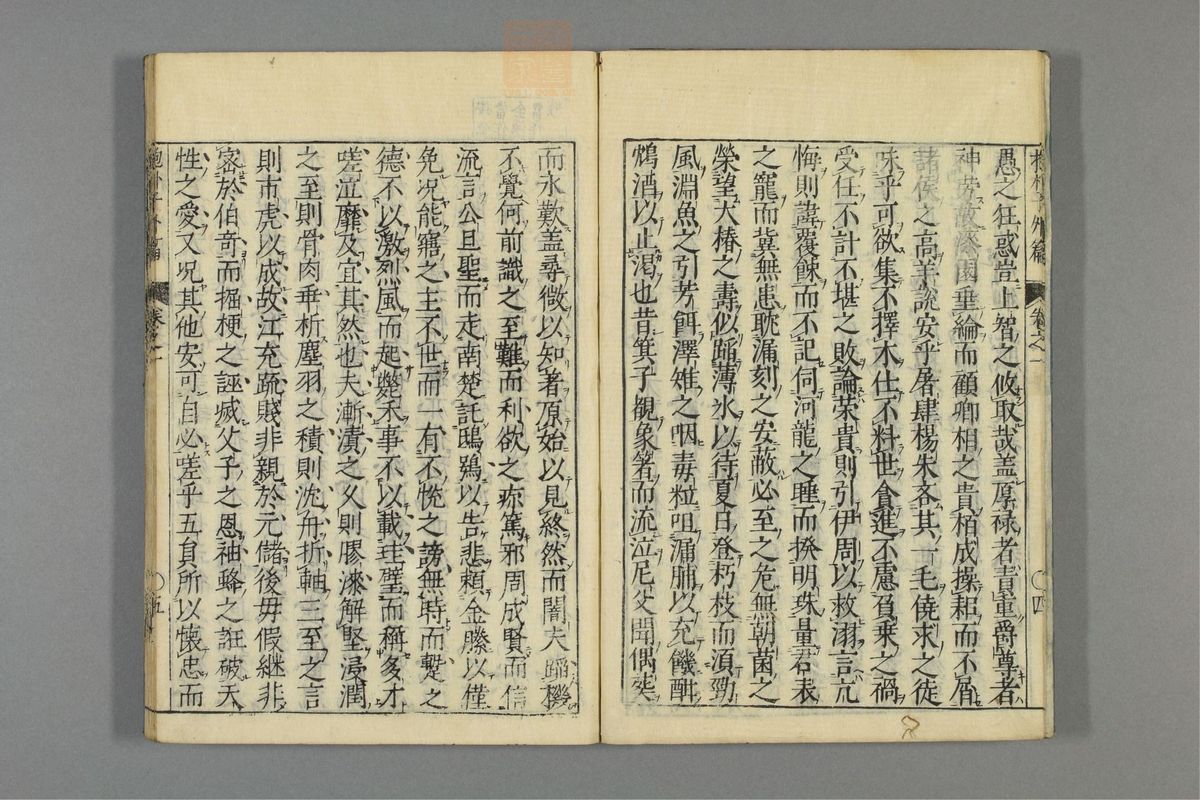 抱朴子外篇
卷之一
〇四
愚之狂惑豈上智之攸取哉盖厚祿者責重爵尊者
神勞故漆園垂綸而不顧卿相之貴栢成操耜而不屑
諸侯之高羊說安乎屠肆楊朱吝其一毛僥求之徒
昧乎可欲集不擇木仕不料世貪進不慮負乗之禍
受任不計不堪之敗論荣貴則引伊周以救溺言亢
悔則諱覆餗而不記伺河龍之睡而揆明珠量君表
之寵而冀無患耽漏刻之安蔽必至之危無朝菌之
榮望大椿之壽似蹈薄氷以待夏日登朽枝而湏勁
風淵魚之引芳餌澤雉之咽毒粒咀漏脯以充饑酣
鴆酒以止渴也昔箕子覩象箸而流泣尼父聞偶葬
而永歎盖尋微以知著原始以見終然而闇夫蹈機
不覺何前識之至難而利欲之病篤邪周成賢而信
流言公旦聖而走南楚託鴟鴞以告悲頼金縢以僅
免况能寤之主不世而一有不悅之謗無時而蹔之
德不以激烈風而起斃禾事不以載珪璧而稱多才
嗟泣靡及宜其然也夫漸漬之久則膠漆解堅浸潤
之至則骨肉乖析塵羽之積則沈舟折軸三至之言
則市虎以成故江充疏賤非親於元儲後毋假継非
宻於伯竒而掘梗之誣㓕父子之恩袖蜂之誑破天
性之愛又况其他安可自必嗟乎五員所以懐忠而
抱朴子外篇
卷之一
〇五